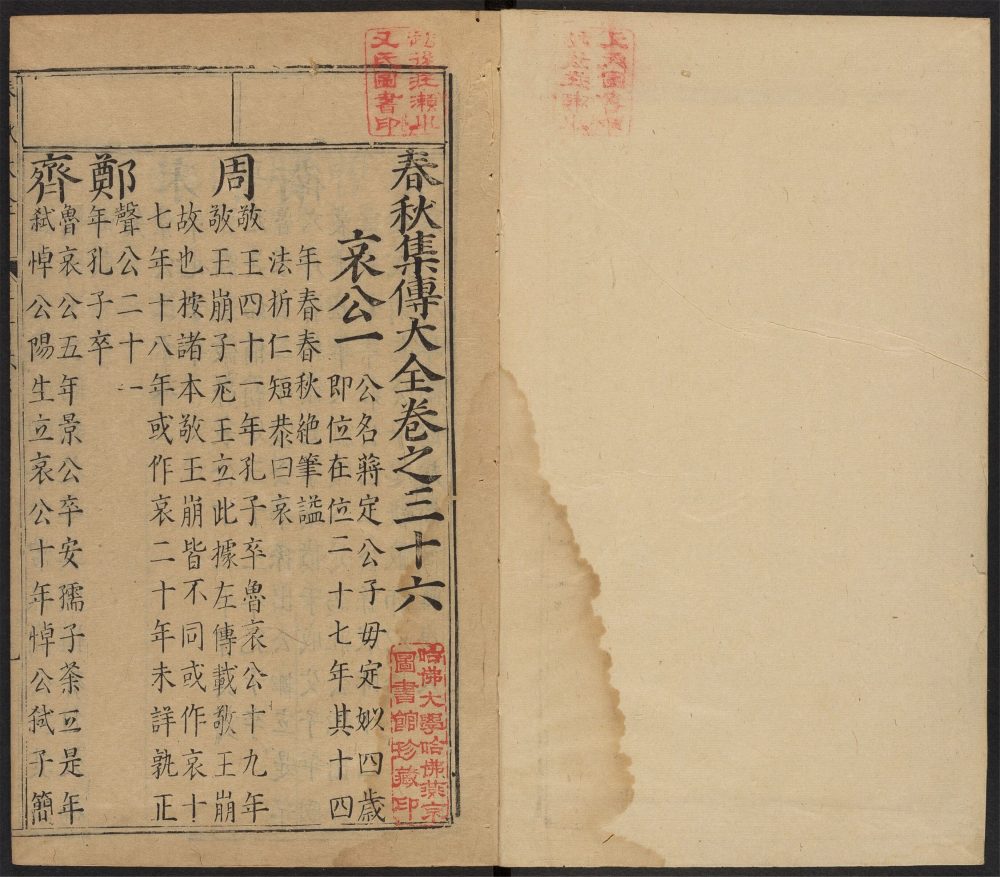 春秋集傳大全卷之三十六
哀公一
公名蔣定公子毋定姒四歲
即位在位二十七年其十四
年春春秋絶筆謚
法折仁短恭曰哀
周
敬王四十一年孔子卒魯哀公十九年
敬王崩子元王立此據左傳載敬王崩
故也按諸本敬王崩皆不同或作哀十
七年十八年或作哀二十年未詳孰正
鄭
聲公二十一
年孔子卒
齊
魯哀公五年景公卒安孺子荼立是年
弑悼公陽生立哀公十年悼公弑子簡
哈佛大學哈佛燕京
圖書館珍藏印
氏圖書印